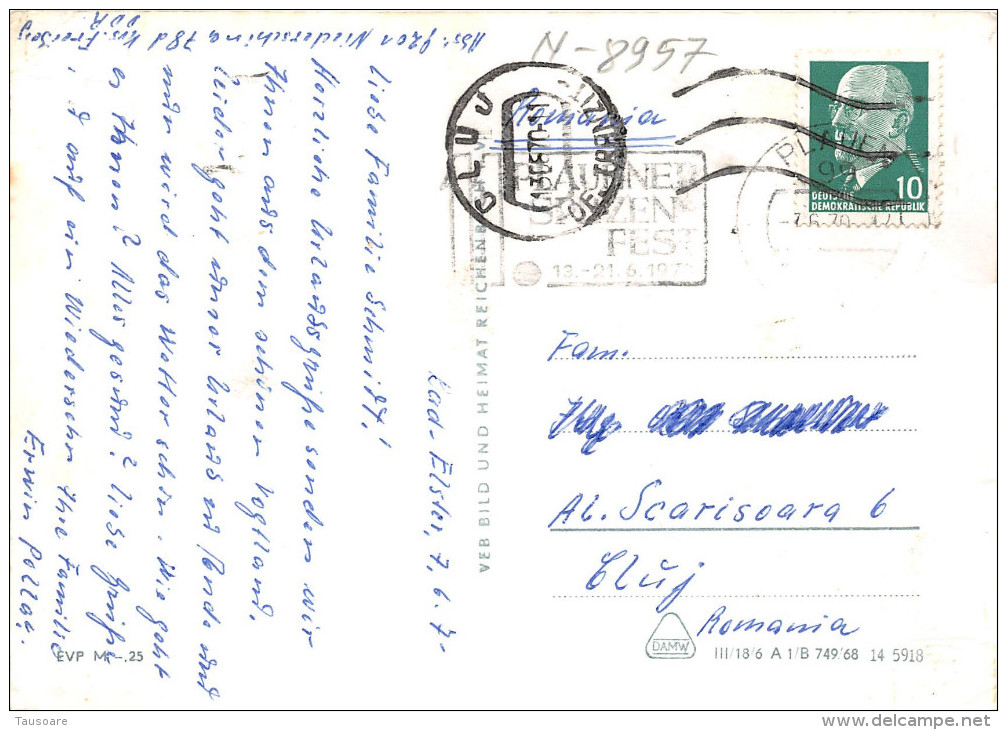 Abs: 9201 Niederschöna 78d Krs. Freiberg
DDR
Bad-Elster, 7. 6. 7
Liebe Familie Schmidt!
Herzliche Urlaubsgrüße senden wir
Ihnen aus dem schönen Vogtland.
Leider geht unser Urlaub zu Ende und
nun wird das Wetter schön. Wie geht
es Ihnen? Alles gesund? Liebe Grüße
u. auf ein Wiedersehn Ihre Familie
Erwin
EVP M –,25
VEB BILD UND HEIMAT REICHENBACH
N-8957
Romania
CLUJ
PLAUENER
SPITZEN
FEST
13.-21.6.197
PLAUEN
-7.6.70
10
DEUTSCHE
DEMOKRATISCHE REPUBLIK
Fam.
Al. Scarisoara 6
Cluj
Romania
DAMW
III/18/6 A 1/B 749/68 14 5918
Tausoare
delcampe.net